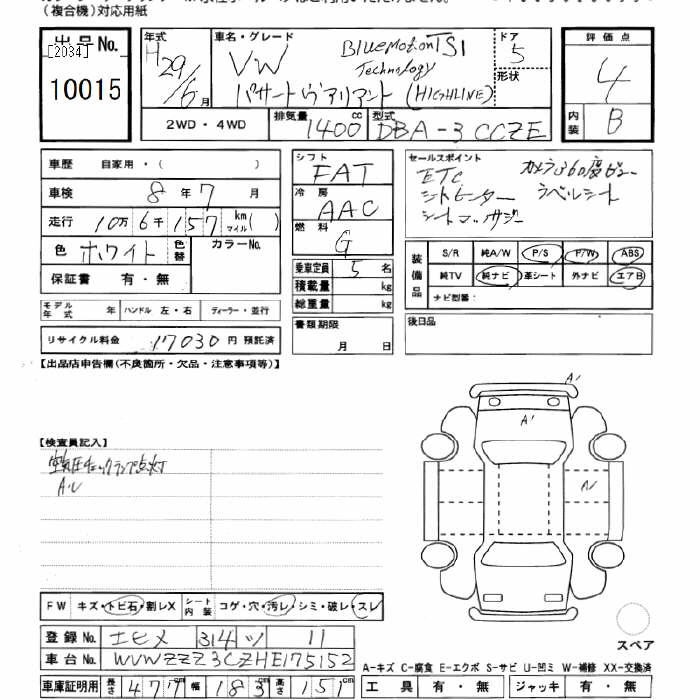 （複合機）対応用紙
出品No.
[2034]
10015
年式
H29/6月
車名・グレード
VW
BlueMotion TSI
Technology
パサートヴァリアント(HIGHLINE)
ドア
5
形状
評価点
4
内装
B
2WD・4WD
排気量
1400cc
型式
DBA-3CCZE
車歴 自家用・( )
車検 8年7月
走行 10万6千157 km マイル( )
色 ホワイト 色替 カラーNo.
保証書 有・無
モデル年式 年 ハンドル 左・右 ディーラー・並行
リサイクル料金 17030円 預託済
シフト
FAT
冷房
AAC
燃料
G
乗車定員 5名
積載量 kg
総重量 kg
書類期限
月 日
セールスポイント
ETC カメラ360度ビュー
シートヒーター ラベルシート
シートマッサジー
装備品
S/R 純A/W P/S P/W ABS
純TV 純ナビ 革シート 外ナビ エアB
ナビ型番：
後日品
【出品店申告欄(不良箇所・欠品・注意事項等)】
A'
A'
A'
【検査員記入】
空気圧チェックランプ点灯
A.U
FW キズ・トビ石・割レX シート内装 コゲ・穴・汚レ・シミ・破レ・スレ
登録No. エヒメ 314 ツ 11
車台No. WVWZZZ3CZHE175152
車庫証明用 長さ 477 幅 183cm 高さ 151cm
スペア
A-キズ C-腐食 E-エクボ S-サビ U-凹ミ W-補修 XX-交換済
工具 有・無 ジャッキ 有・無